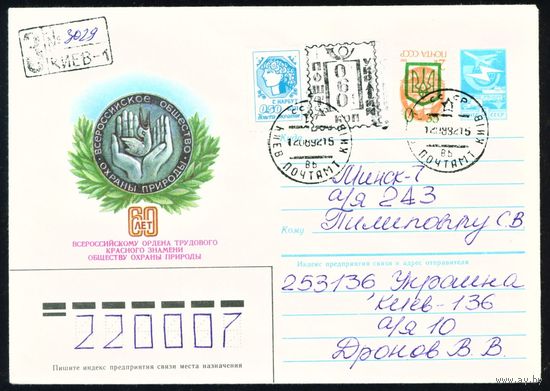 З № 3029
КИЕВ-1
ВСЕРОССИЙСКОЕ ОБЩЕСТВО
ОХРАНЫ ПРИРОДЫ
60 ЛЕТ
ВСЕРОССИЙСКОМУ ОРДЕНА ТРУДОВОГО
КРАСНОГО ЗНАМЕНИ
ОБЩЕСТВУ ОХРАНЫ ПРИРОДЫ
Г. НАРБУТ
0,50
ПОШТА
УКРАЇНИ
060
КУП
ПОЧТА СССР
СССР
КИЕВ ПОЧТАМТ
12089215
ВЬ
КИЕВ ПОЧТАМТ
12089215
ВЬ
Куда
Минск-7
а/я 243
Кому Пилиповичу С В
Индекс предприятия связи и адрес отправителя
253136 Украина
Киев-136
а/я 10
Дронов В. В.
220007
Пишите индекс предприятия связи места назначения
www.ay.by